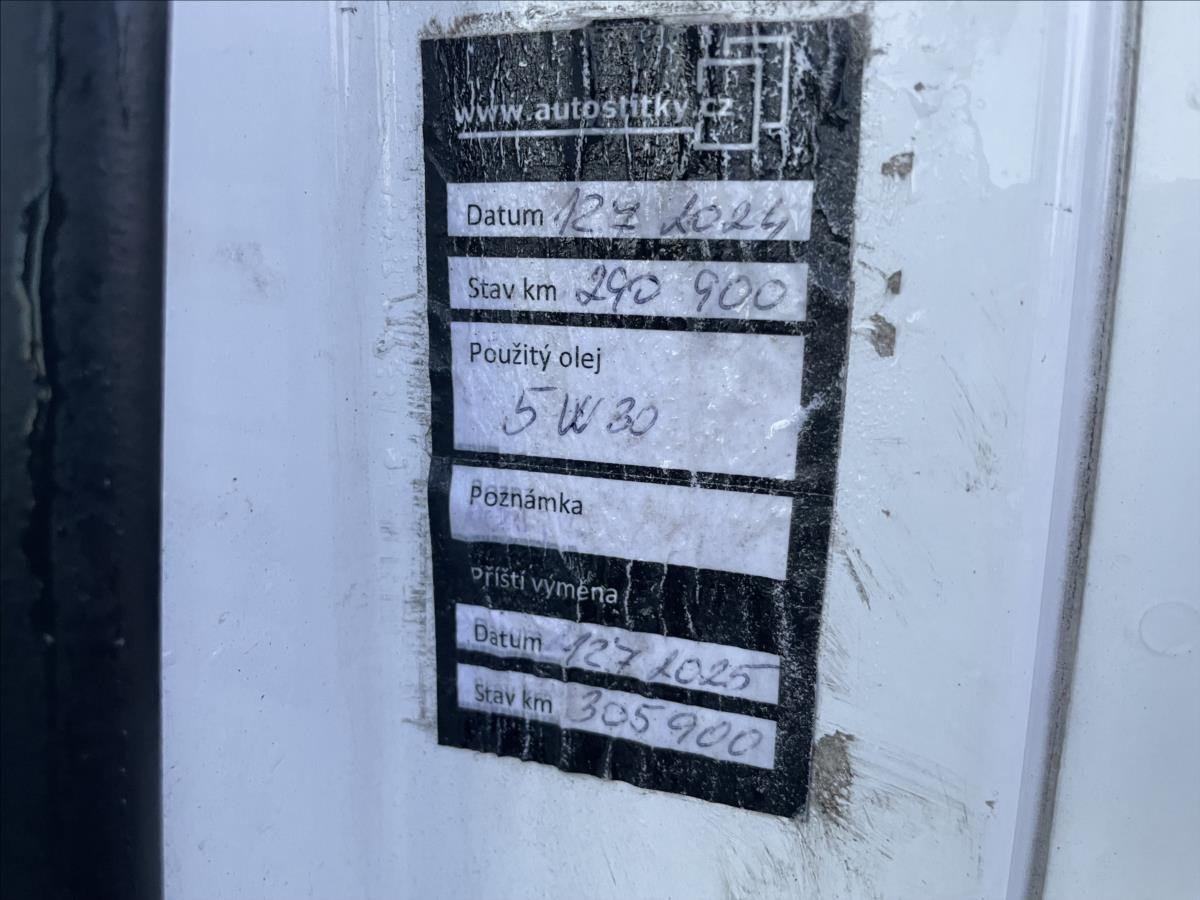 www.autostitky.cz
Datum 12 7 2024
Stav km 290 900
Použitý olej
5W30
Poznámka
Příští výměna
Datum 12 7 2025
Stav km 305 900